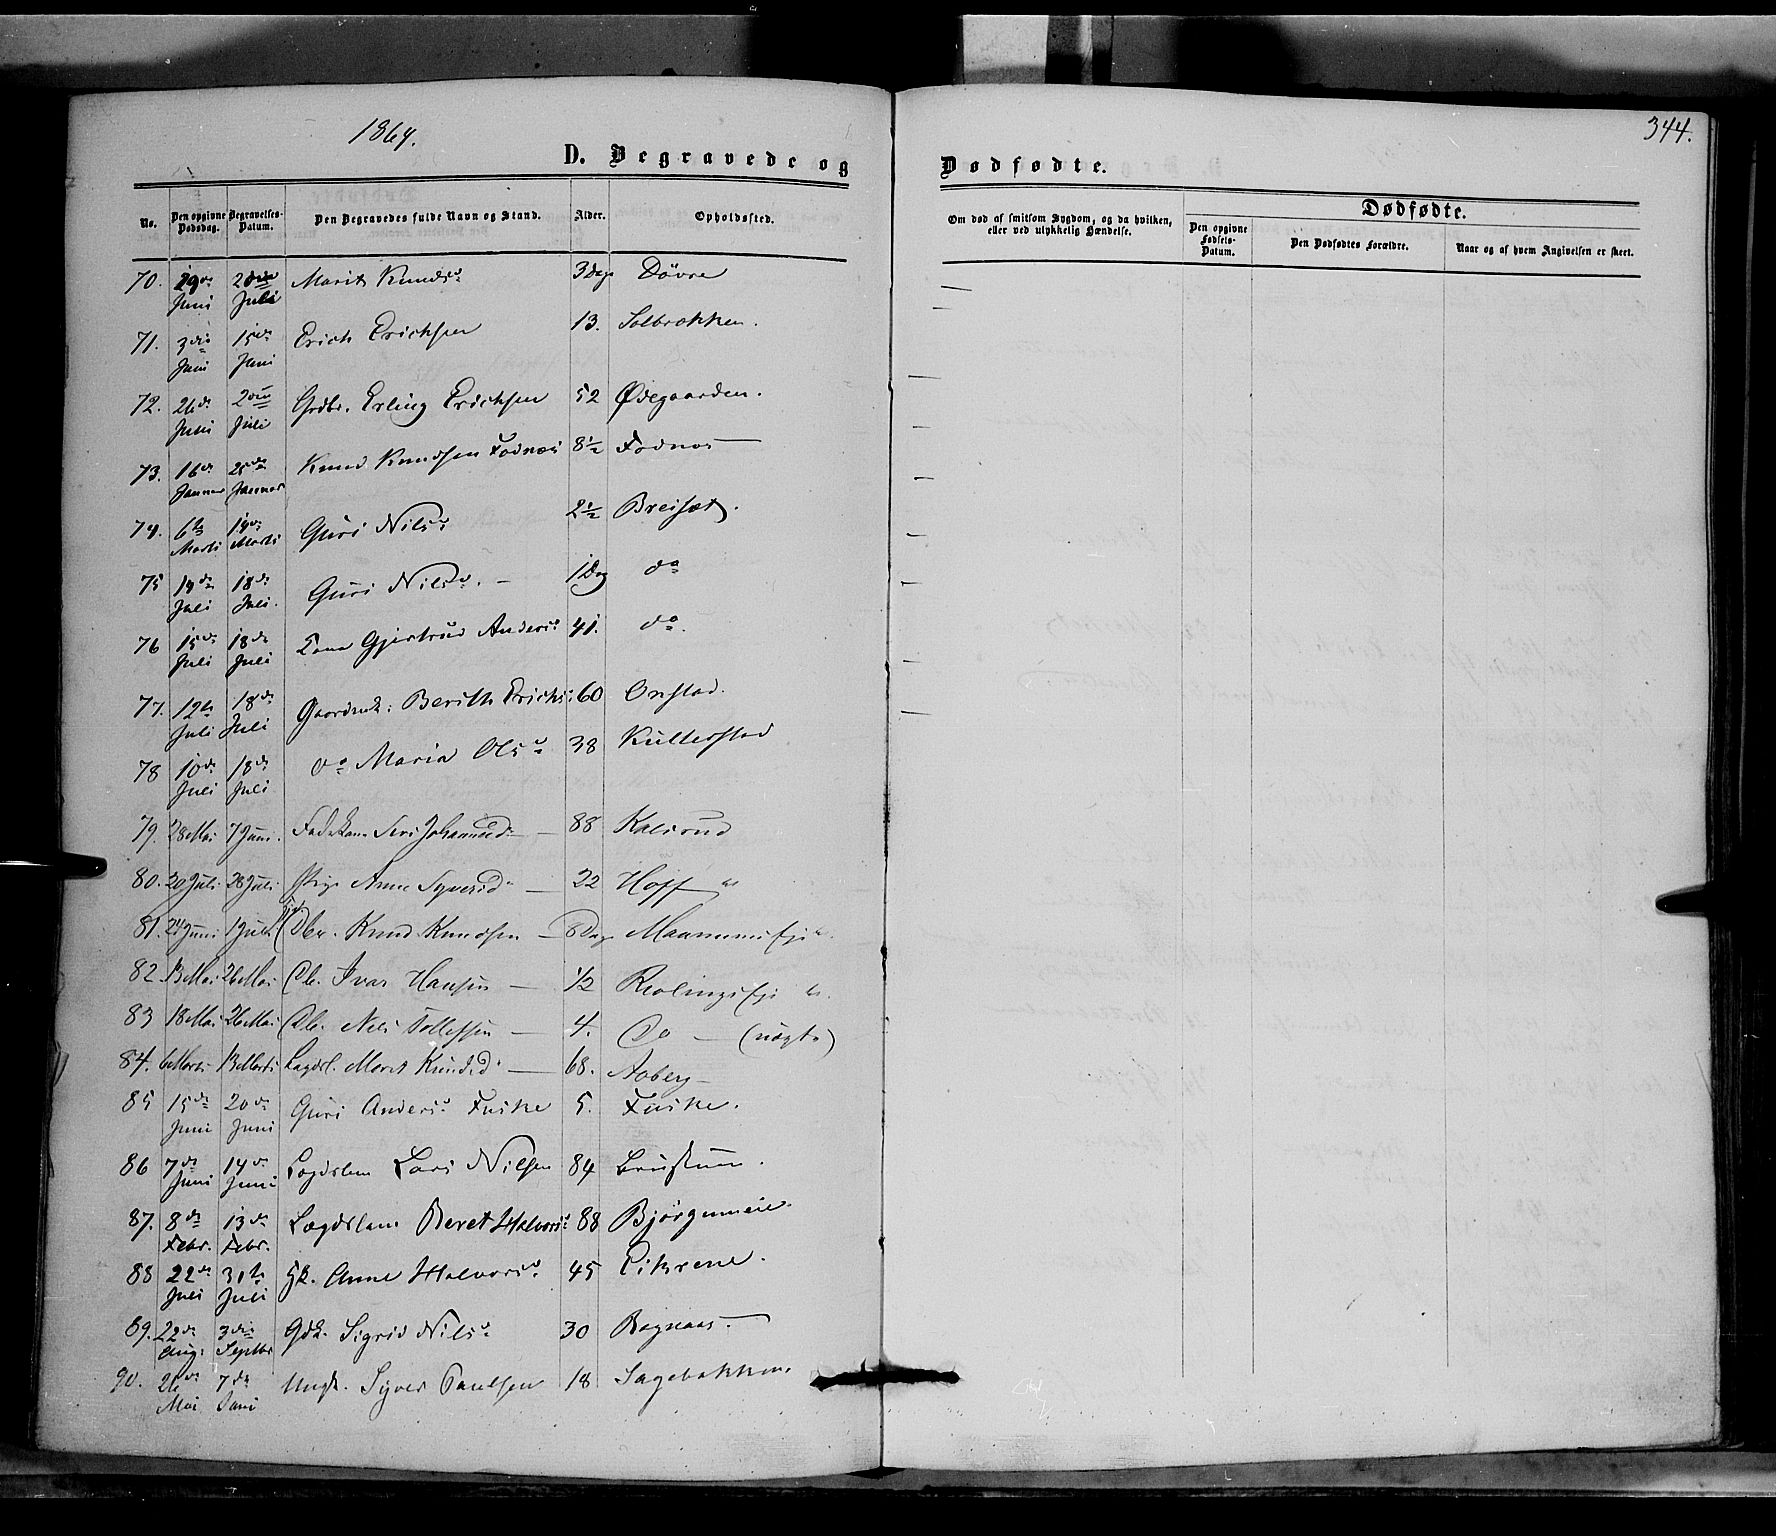 1864.
344.
D. Begravede og
Dødfødte.
No.
Den opgivne Dødsdag.
Begravelses-Datum.
Den Begravedes fulde Navn og Stand.
Alder.
Opholdssted.
Om død af smitsom Sygdom, og da hvilken, eller ved ulykkelig Hændelse.
Dødfødte.
Den opgivne Fødsels-Datum.
Den Dødfødtes Forældre.
Naar og af hvem Angivelsen er skeet.
70. 29de Juni Juli Marit Knudsd 3 Dage Døvre
71. 3die Juni 15de Juni Erich Erichsen 13. Solbrækken.
72. 26de Juni 2den Juli Grdbr. Erling Erichsen 52 Ødegaarden.
73. 16de Januar 25de Januar Knud Knudsen Fodnæs 8½ Fodnæs
74. 6te Marts 19de Marts Guri Nilsd 2½ Breisæt.
75 14de Juli 18de Juli. Guri Nilsd. 1 Dag do
76 15de Juli 18de Juli Gjertrud Andersd 41. do.
77. 12te Juli 18de Juli Gaardmk: Berith Erichsd: 60 Onstad.
78 10de Juli 18de Juli do Maria Olsd 38 Kullerstad
79. 28 Mai 7 Juni. Johannesd. 88 Kalsrud
80. 20 Juli 28 Juli Pige Anne Syversd. 22 Hoff
81. 24 Juni 1 Juli Dbr. Knud Knudsen Dage
82 13 Mai 26 Mai Db. Ivar Hansen ½
83 18 Mai 26 Mai Db. Nils Tollefsen 4. Do
84. 6 Marts 13 Marts Lægdsl. Marit Knudsd. 68. Aaberg
85 15de Juni 20de Juni Guri Andersd Fuske 5. Fuske.
86 7de Juni 14de Juni Lægdslem Lars Nilsen 84 Brustuen.
87. 8de Febr. 13de Febr. Lægdslem Beret Halvorsd 88 Bjørgumeie.
88 22de Juli 31te Juli Gk. Anne Halvorsd. 45 Eikrene.
89. 22de Aug. 3die Septbr Gdk. Sigrid Nilsd 30 Bagnaas.
90. 26de Mai 7de Juni Ungk. Syver Paulsen 18 Sagebakken.